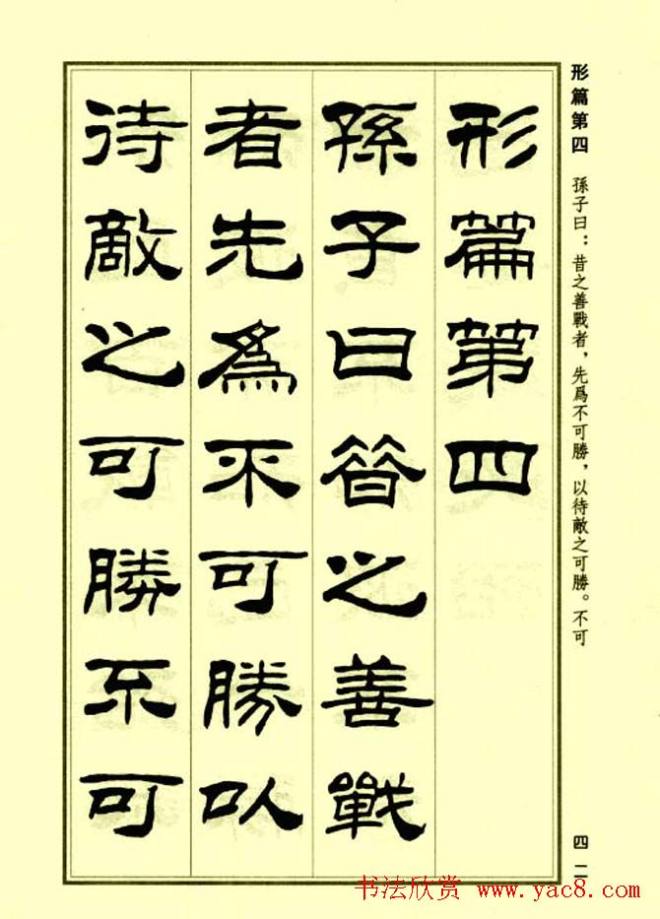 形篇第四
孫子曰昔之善戰
者先爲不可勝以
待敵之可勝不可
形篇第四 孫子曰：昔之善戰者，先爲不可勝，以待敵之可勝。不可
四二
书法欣赏 www.yac8.com